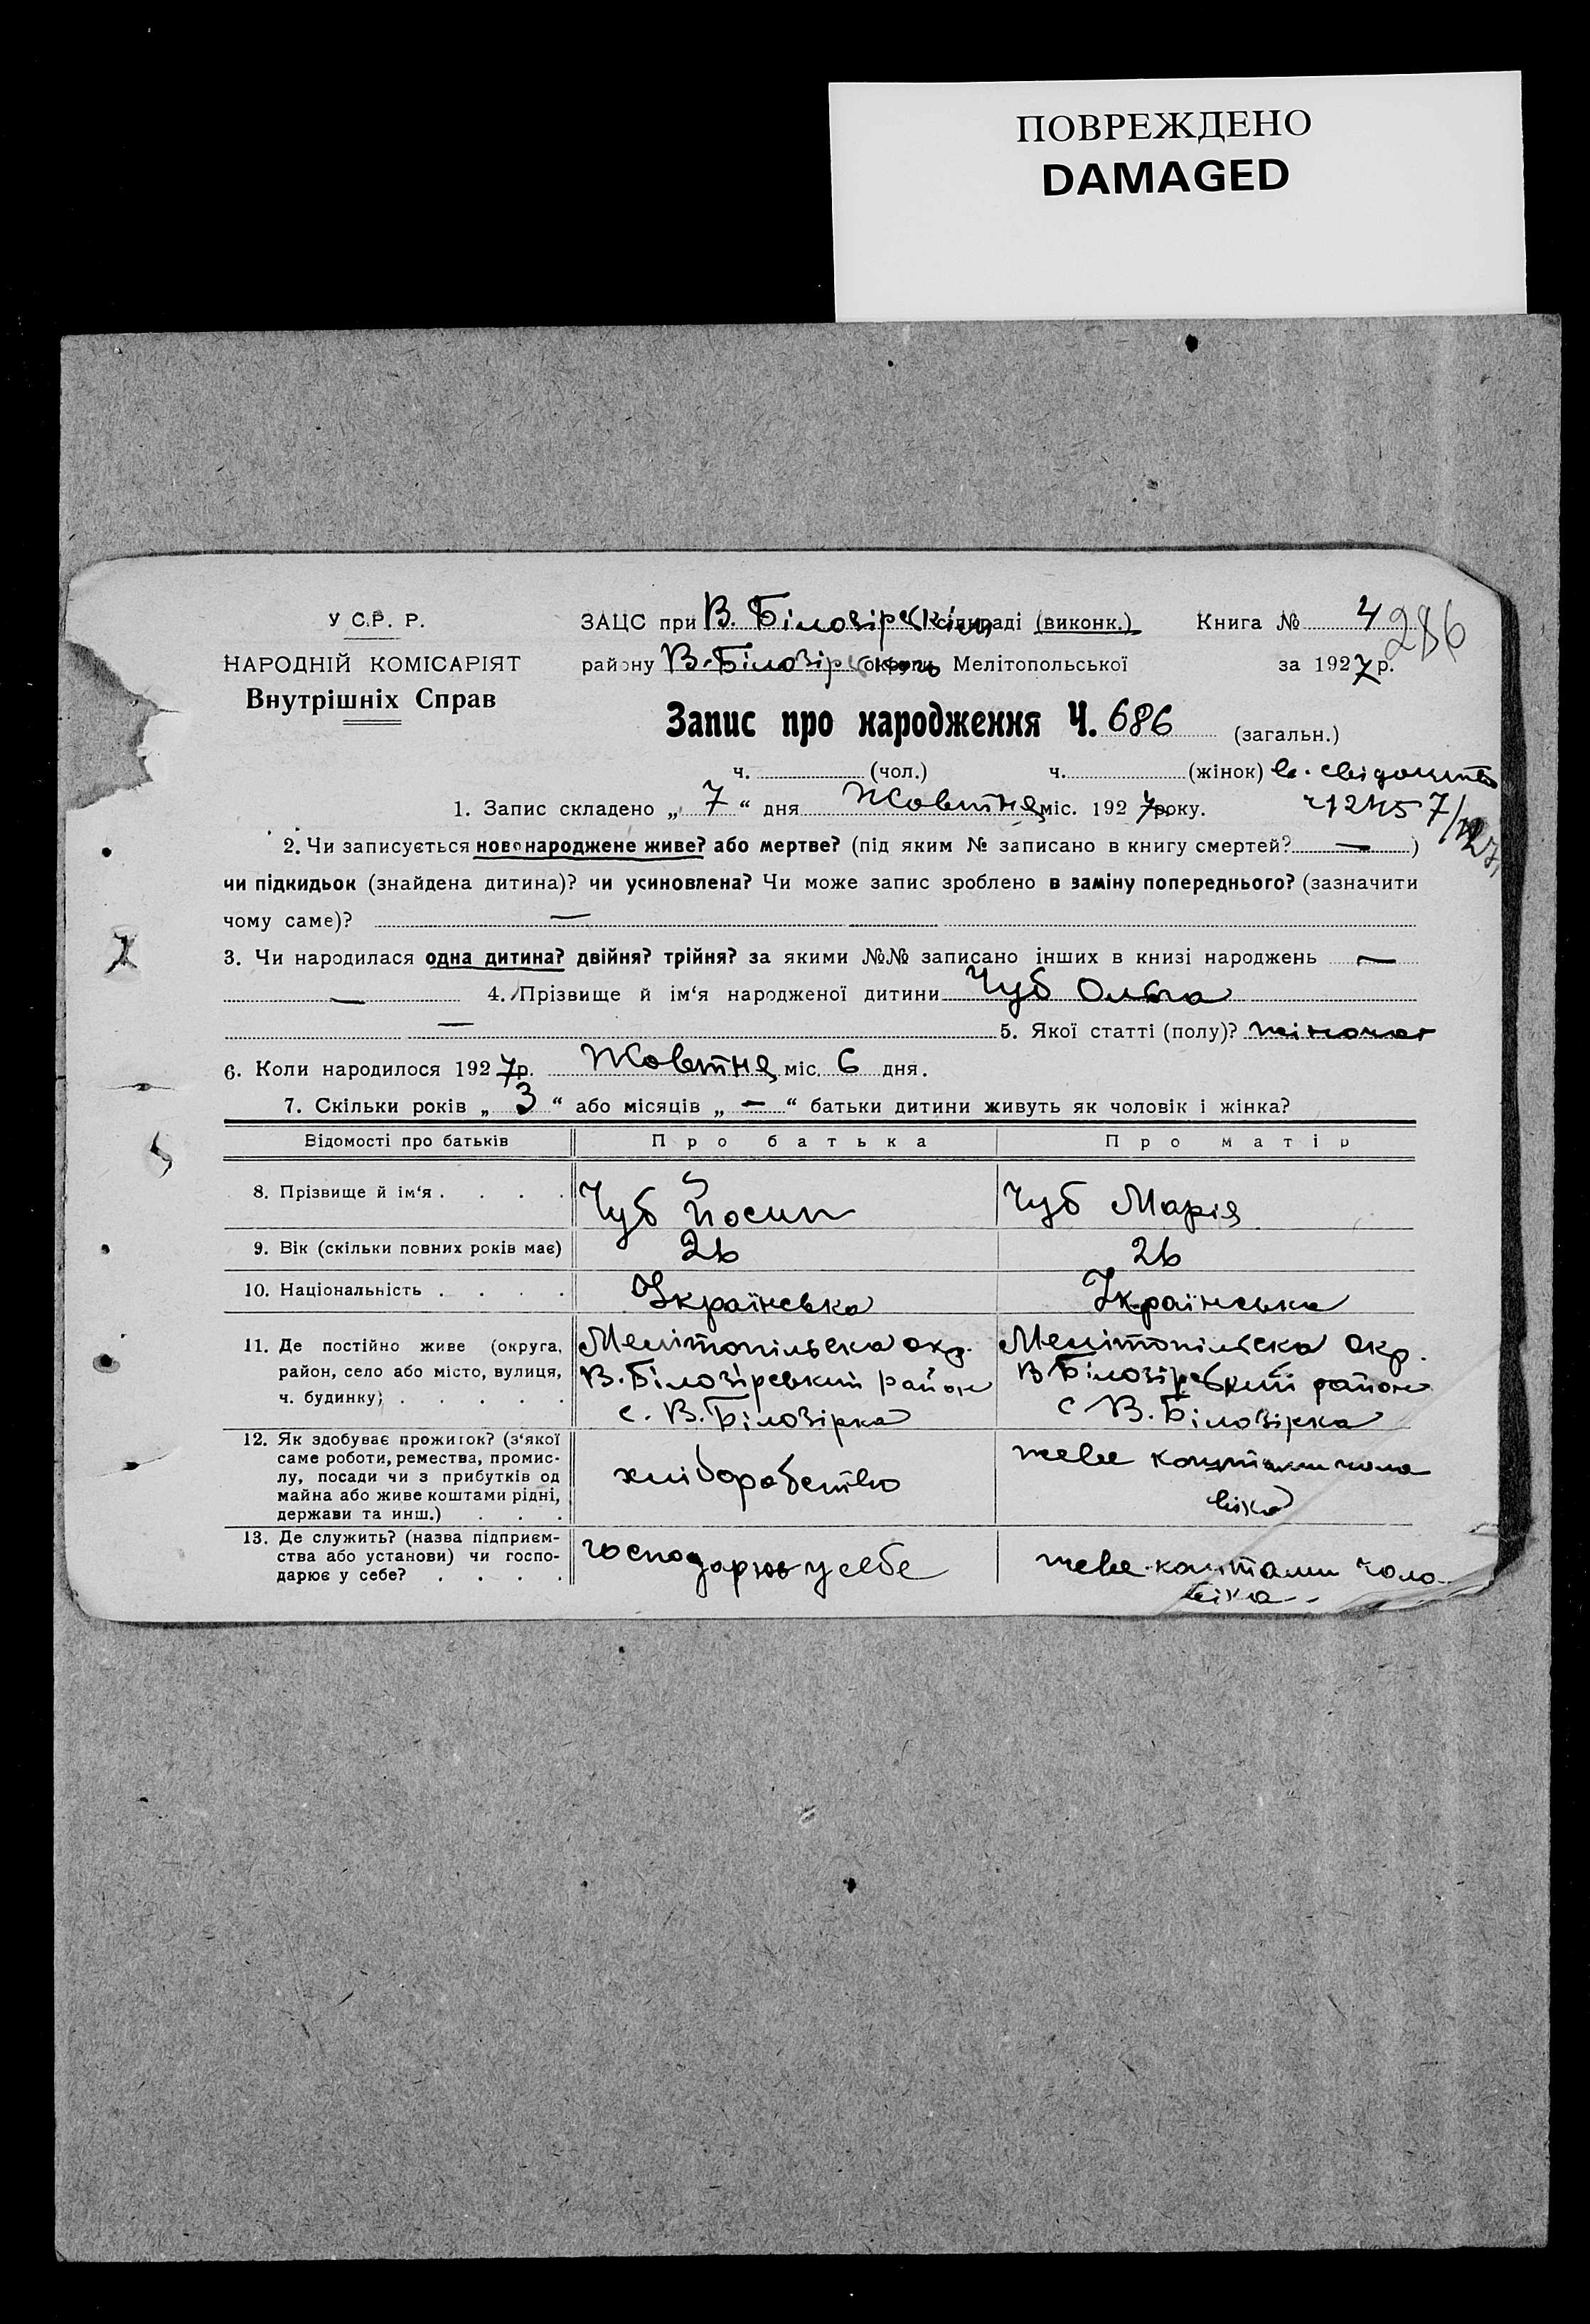 ПОВРЕЖДЕНО
DAMAGED
У С.Р. Р.
НАРОДНІЙ КОМІСАРІЯТ
Внутрішніх Справ
ЗАЦС при В. Білозірскім сільраді (виконк.) Книга № 4 286
району В. Білозірск округи Мелітопольської за 1927 р.
Запис про народження Ч. 686 (загальн.)
ч. (чол.) ч. (жінок) в. свідоцтво
1. Запис складено „ 7 “ дня Жовтня міс. 1927 року.
2. Чи записується новонароджене живе? або мертве? (під яким № записано в книгу смертей? — )
чи підкидьок (знайдена дитина)? чи усиновлена? Чи може запис зроблено в заміну попереднього? (зазначити
чому саме)? —
3. Чи народилася одна дитина? двійня? трійня? за якими №№ записано інших в книзі народжень —
— 4. Прізвище й ім‘я народженої дитини Чуб Ольга
— 5. Якої статті (полу)? жіночої
6. Коли народилося 1927 р. Жовтня міс. 6 дня.
7. Скільки років „ 3 “ або місяців „ — “ батьки дитини живуть як чоловік і жінка?
Відомості про батьків Про батька Про матір
8. Прізвище й ім‘я . . . . Чуб Йосип Чуб Марія
9. Вік (скільки повних років має) 26 26
10. Національність . . . . Українська Українська
11. Де постійно живе (округа, район, село або місто, вулиця, ч. будинку; . . . . .
Мелітопільська окр. Мелітопільска окр.
В. Білозіревький район В Білозірський район
с. В. Білозірка с В. Білозірка
12. Як здобуває прожиток? (з‘якої
саме роботи, ремества, промис-
лу, посади чи з прибутків од
майна або живе коштами рідні,
держави та инш.) . . .
хліборобство живе коштами чоло
віка
13. Де служить? (назва підприєм-
ства або установи) чи госпо-
дарює у себе? . . . .
господарює у себе живе коштами чоло-
віка